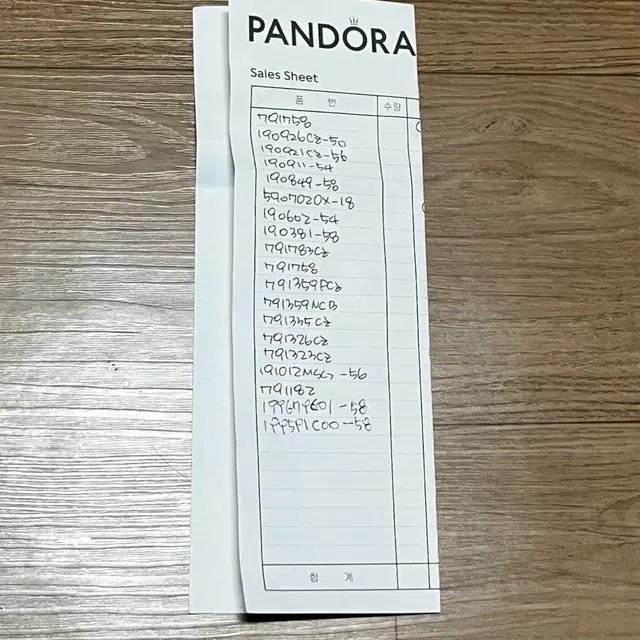 PANDORA
Sales Sheet
품 번 수량
791758
190926CZ-50
190921CZ-56
190911-54
190849-58
590702OX-18
190602-54
190381-58
791783CZ
791758
791359PCZ
791359NCB
791335CZ
791326CZ
791323CZ
191012MSG7 -56
791182
199679C01-58
199591C00-58
합 계